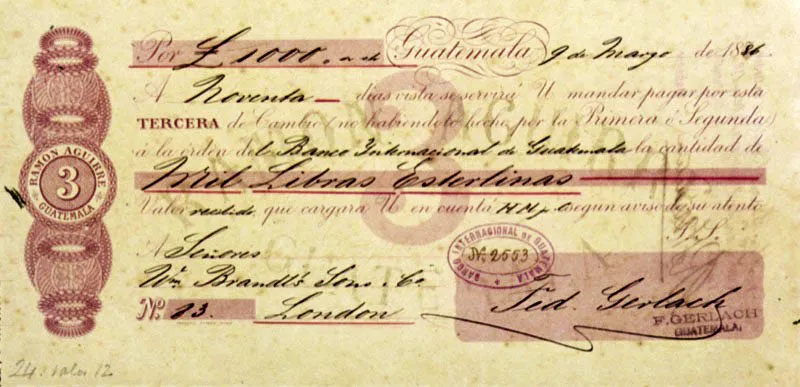 Por £ 1000,, Guatemala 9 de Marzo de 1886
A Noventa dias vista se servirá U mandar pagar por esta
TERCERA de Cambio (no habiendolo hecho por la Primera ó Segunda)
á la orden del Banco Internacional de Guatemala la cantidad de
Mil Libras Esterlinas
Valor recibido que cargará U en cuenta segun aviso de su atento
S.S.
A Señores
Wm Brandt's Sons & Co
No. 23. London
RAMON AGUIRRE
3
GUATEMALA
BANCO INTERNACIONAL DE GUATEMALA
No. 2553
Fed. Gerlach
F. GERLACH
GUATEMALA.
24.